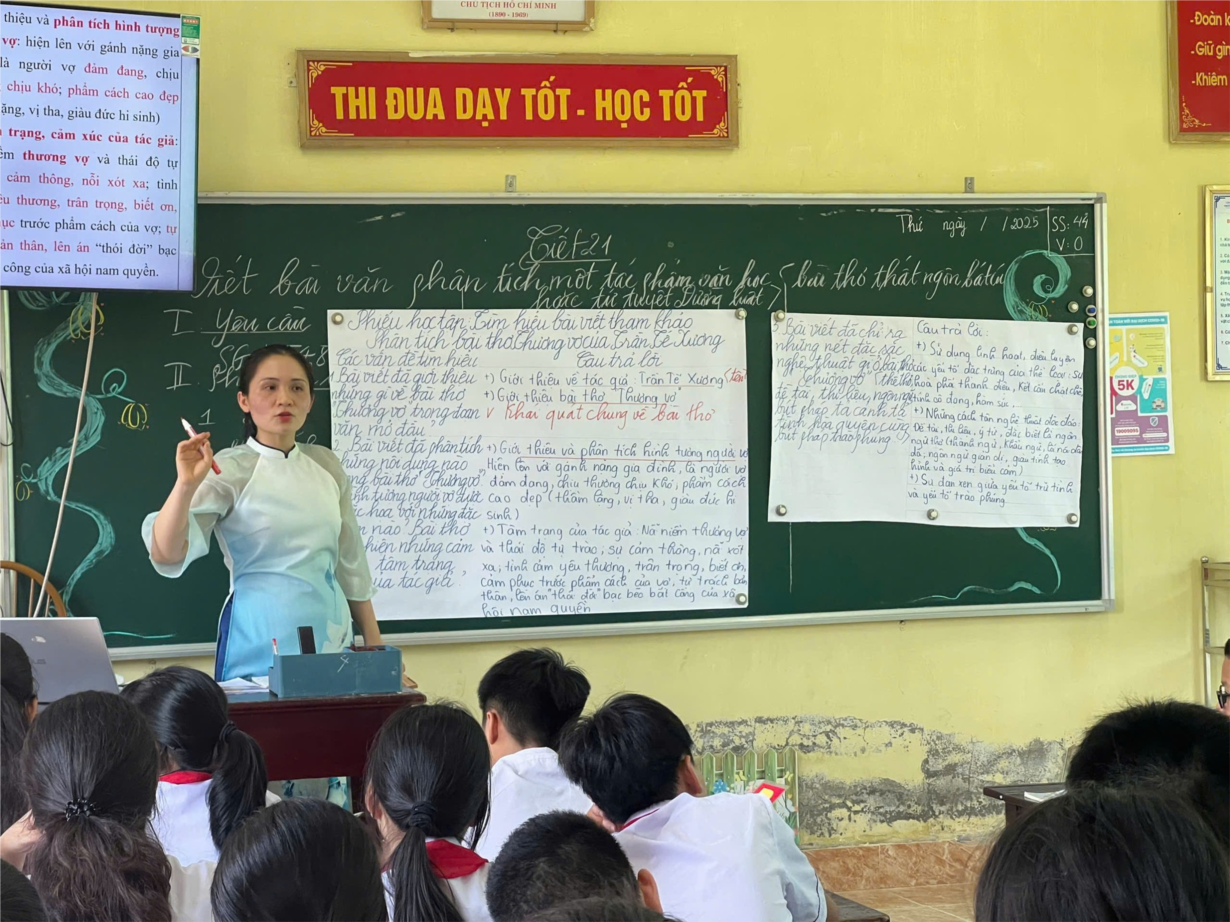 CHỦ TỊCH HỒ CHÍ MINH
(1890 - 1969)
THI ĐUA DẠY TỐT - HỌC TỐT
-Đoàn
-Giữ gìn
-Khiêm
thiệu và phân tích hình tượng
vợ: hiện lên với gánh nặng gia
là người vợ đảm đang, chịu
chịu khó; phẩm cách cao đẹp
lặng, vị tha, giàu đức hi sinh)
trạng, cảm xúc của tác giả:
thương vợ và thái độ tự
cảm thông, nỗi xót xa; tình
thương, trân trọng, biết ơn,
trước phẩm cách của vợ; tự
thân, lên án “thói đời” bạc
công của xã hội nam quyền.
Thứ ngày / / 2025
SS: 44
V: 0
Tiết 21
Viết bài văn phân tích một tác phẩm văn học bài thơ thất ngôn bát cú
hoặc tứ tuyệt Đường luật
I Yêu cầu
II
1
Phiếu học tập: Tìm hiểu bài viết tham khảo
Phân tích bài thơ Thương vợ của Trần Tế Xương
Các vấn đề tìm hiểu
Câu trả lời
Bài viết đã giới thiệu
những gì về bài thơ
Thương vợ trong đoạn
văn mở đầu
+) Giới thiệu về tác giả: Trần Tế Xương
+) Giới thiệu bài thơ "Thương vợ"
v Khái quát chung về bài thơ
Bài viết đã phân tích
những nội dung nào
bài thơ "Thương vợ"
hình tượng người vợ được
hoạ với những đặc
nào? Bài thơ
hiện những cảm
tâm trạng
của tác giả
+) Giới thiệu và phân tích hình tượng người vợ
Hiện lên với gánh nặng gia đình, là người vợ
đảm đang, chịu thương chịu khó, phẩm cách
cao đẹp (thầm lặng, vị tha, giàu đức hi
sinh)
+) Tâm trạng của tác giả: Nỗi niềm thương vợ
và thái độ tự trào; sự cảm thông, nỗi xót
xa; tình cảm yêu thương, trân trọng, biết ơn,
cảm phục trước phẩm cách của vợ, tự trách bản
thân, lên án "thói đời" bạc bẽo bất công của xã
hội nam quyền
3. Bài viết đã chỉ ra
những nét đặc sắc
nghệ thuật gì ở bài thơ
Thương vợ (thể thơ,
đề tài, thi liệu, ngôn ngữ,
bút pháp tả cảnh, tả
tình hoà quyện cùng
bút pháp trào phúng
Câu trả lời:
+) Sử dụng linh hoạt, điêu luyện
các yếu tố đặc trưng của thể loại: Sự
hoà phối thanh điệu, kết cấu chặt chẽ,
tính cô đọng, hàm súc.
+) Những cách tân nghệ thuật độc đáo:
Đề tài, thi liệu, ý tứ, đặc biệt là ngôn
ngữ thơ (thành ngữ, khẩu ngữ,
ngôn ngữ giản dị, giàu tính tạo
hình và giá trị biểu cảm)
+) Sự đan xen giữa yếu tố trữ tình
và yếu tố trào phúng.
5K